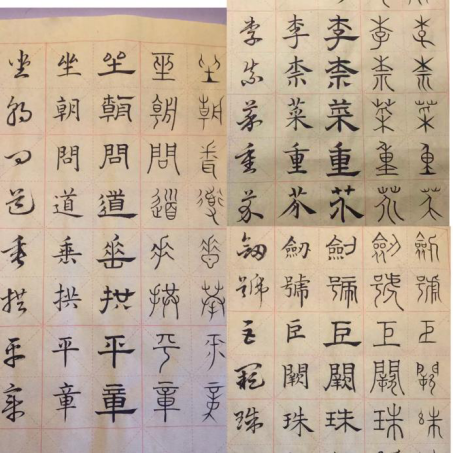 坐朝問道垂拱平章
坐朝問道垂拱平章
坐朝問道垂拱平章
坐朝問道垂拱平章
坐朝問道垂拱平章
李柰菜重芥
李柰菜重芥
李柰菜重芥
李柰菜重芥
李柰菜重芥
劍號巨闕珠
劍號巨闕珠
劍號巨闕珠
劍號巨闕珠
劍號巨闕珠